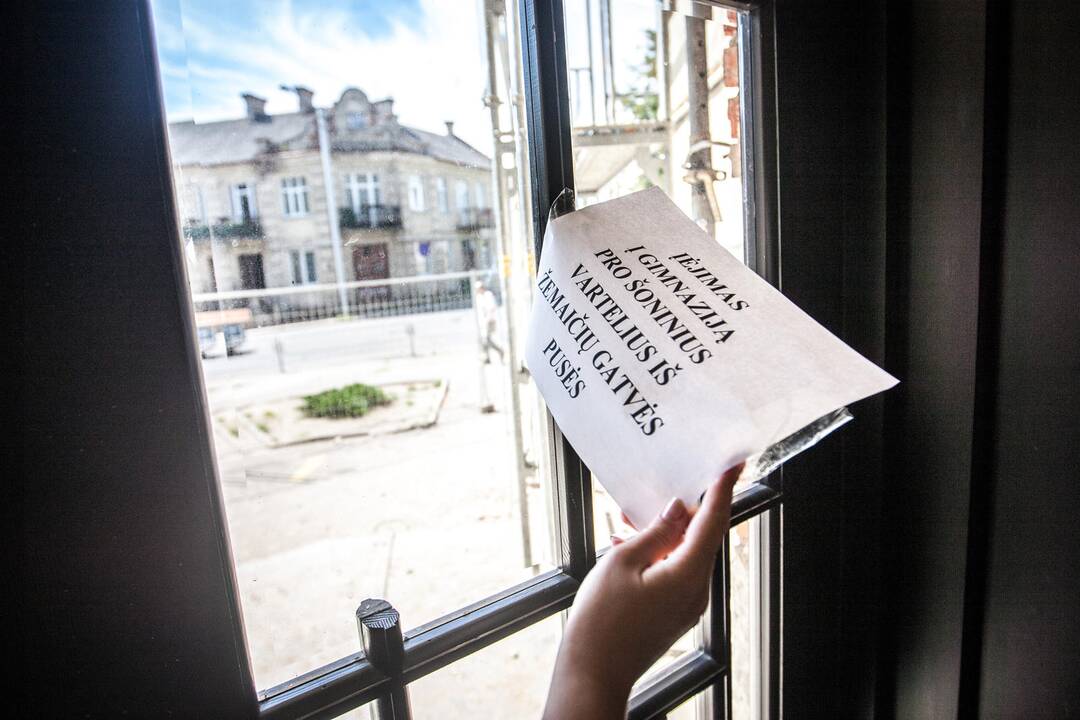 ĮĖJIMAS
Į GIMNAZIJA
PRO ŠONINIUS
VARTELIUS IŠ
ŽEMAIČIŲ GATVĖS
PUSĖS